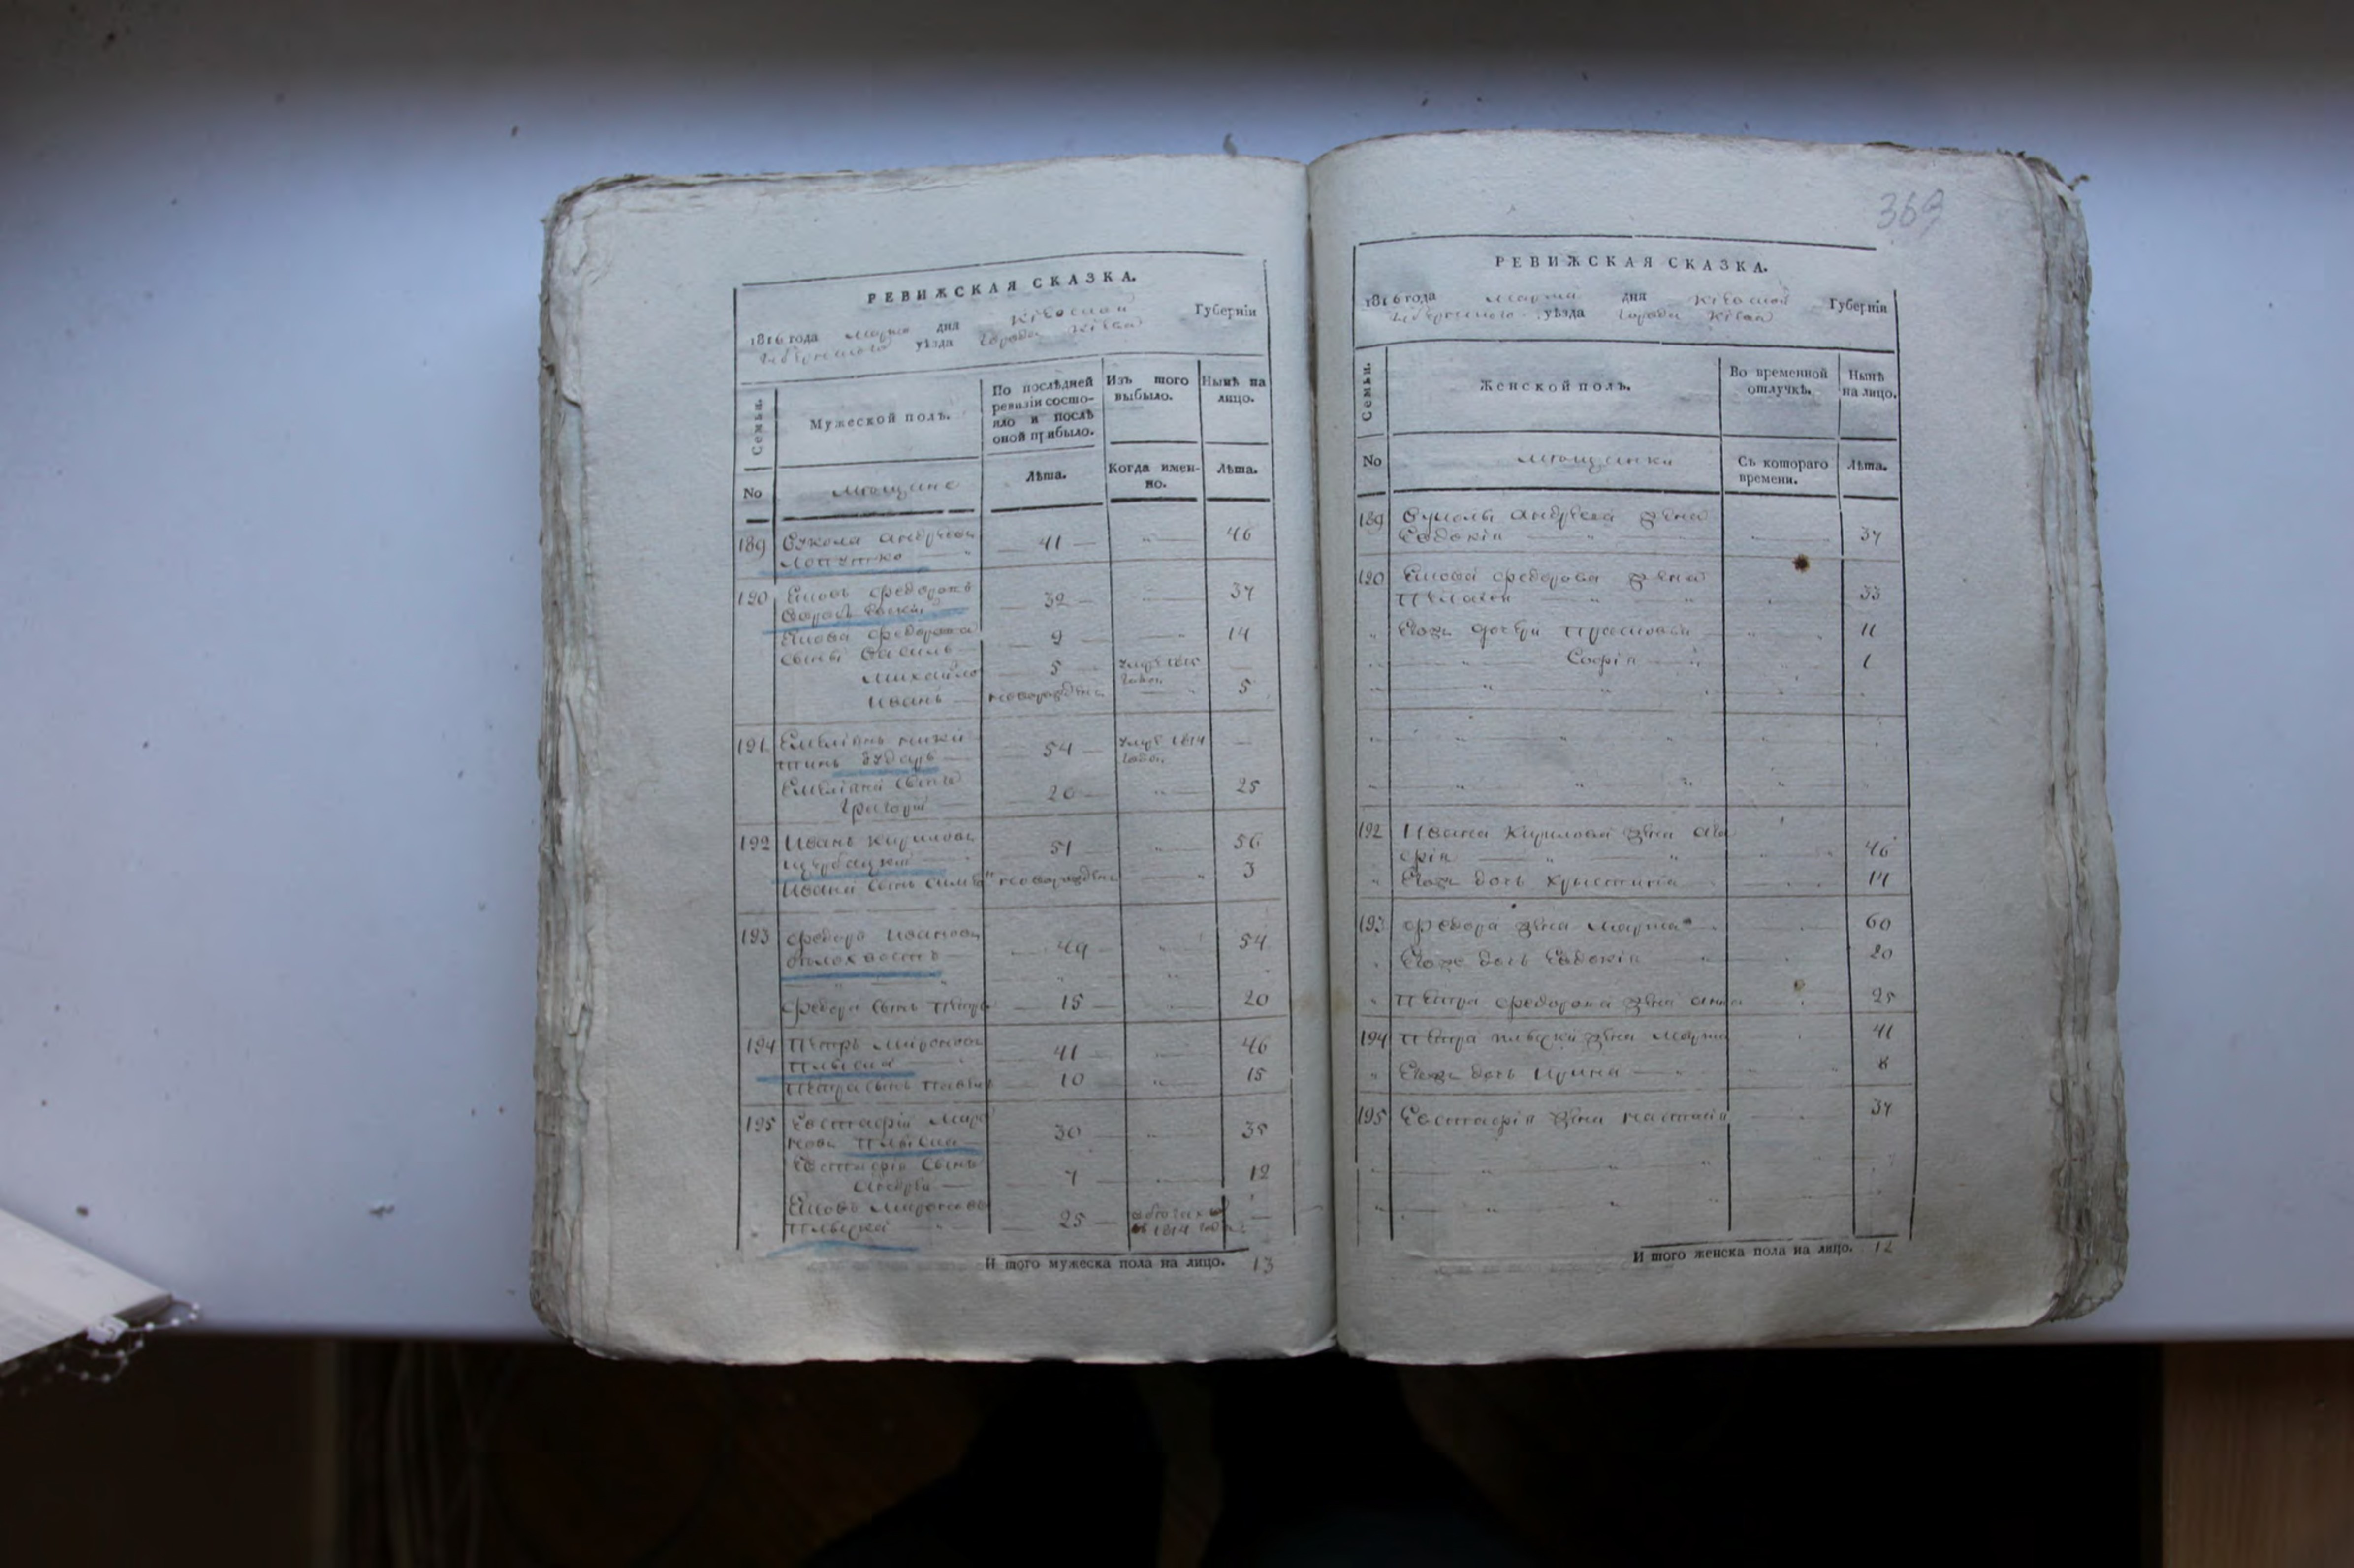 РЕВИЖСКАЯ СКАЗКА.
1816 года марта дня Кіевской Губерніи
уѣзда города Кіева
Семьи.
Мужеской полъ.
По послѣдней ревизіи состояло и послѣ оной прибыло.
Изъ того выбыло.
Нынѣ на лицо.
No
мещане
Лѣта.
Когда именно.
Лѣта.
189 Вукола Андреевъ — 41 — 46
Лопатко
190 Яковъ Федоровъ — 32 — 37
Якова Федорова — 9 — 14
сыны Василь
Михайло 5 умре 1815 годе
Иванъ новорожденъ 5
191 Емеліянъ Ники — 54 — умре 1814 годе
тинъ
Емеліяна сынъ — 20 — 25
Григорій
192 Иванъ Кириловъ 51 56
Щербацкій
Ивана сынъ новорожденъ 3
193 Федоръ Ивановъ — 49 — 54
Федора сынъ Петръ — 15 — 20
194 Петръ Мироновъ 41 46
Петра сынъ Павелъ 10 15
195 Евстафій Миро 30 35
новъ
Евстафія сынъ 7 12
Андрей
Яковъ Мироновъ — 25 — въ 1814 год
И того мужеска пола на лицо. 13
369
РЕВИЖСКАЯ СКАЗКА.
1816 года марта дня Кіевской Губерніи
уѣзда города Кіева
Семьи.
Женской полъ.
Во временной отлучкѣ.
Нынѣ на лицо.
No
мещанки
Съ котораго времени.
Лѣта.
189 Андреева жена
Евдокія 37
190 Якова Федорова жена
Пелагея 33
Его же дочери Прасковья 11
Софія 1
192 Ивана Кирилова жена Ага
фія 46
Его же дочь Христина 14
193 Федора жена Марта 60
Его же дочь Евдокія 20
Петра Федорова жена Анна 25
194 Петра жена Марта 41
Его же дочь Ирина 8
195 Евстафія жена Настасія 37
И того женска пола на лицо. 12